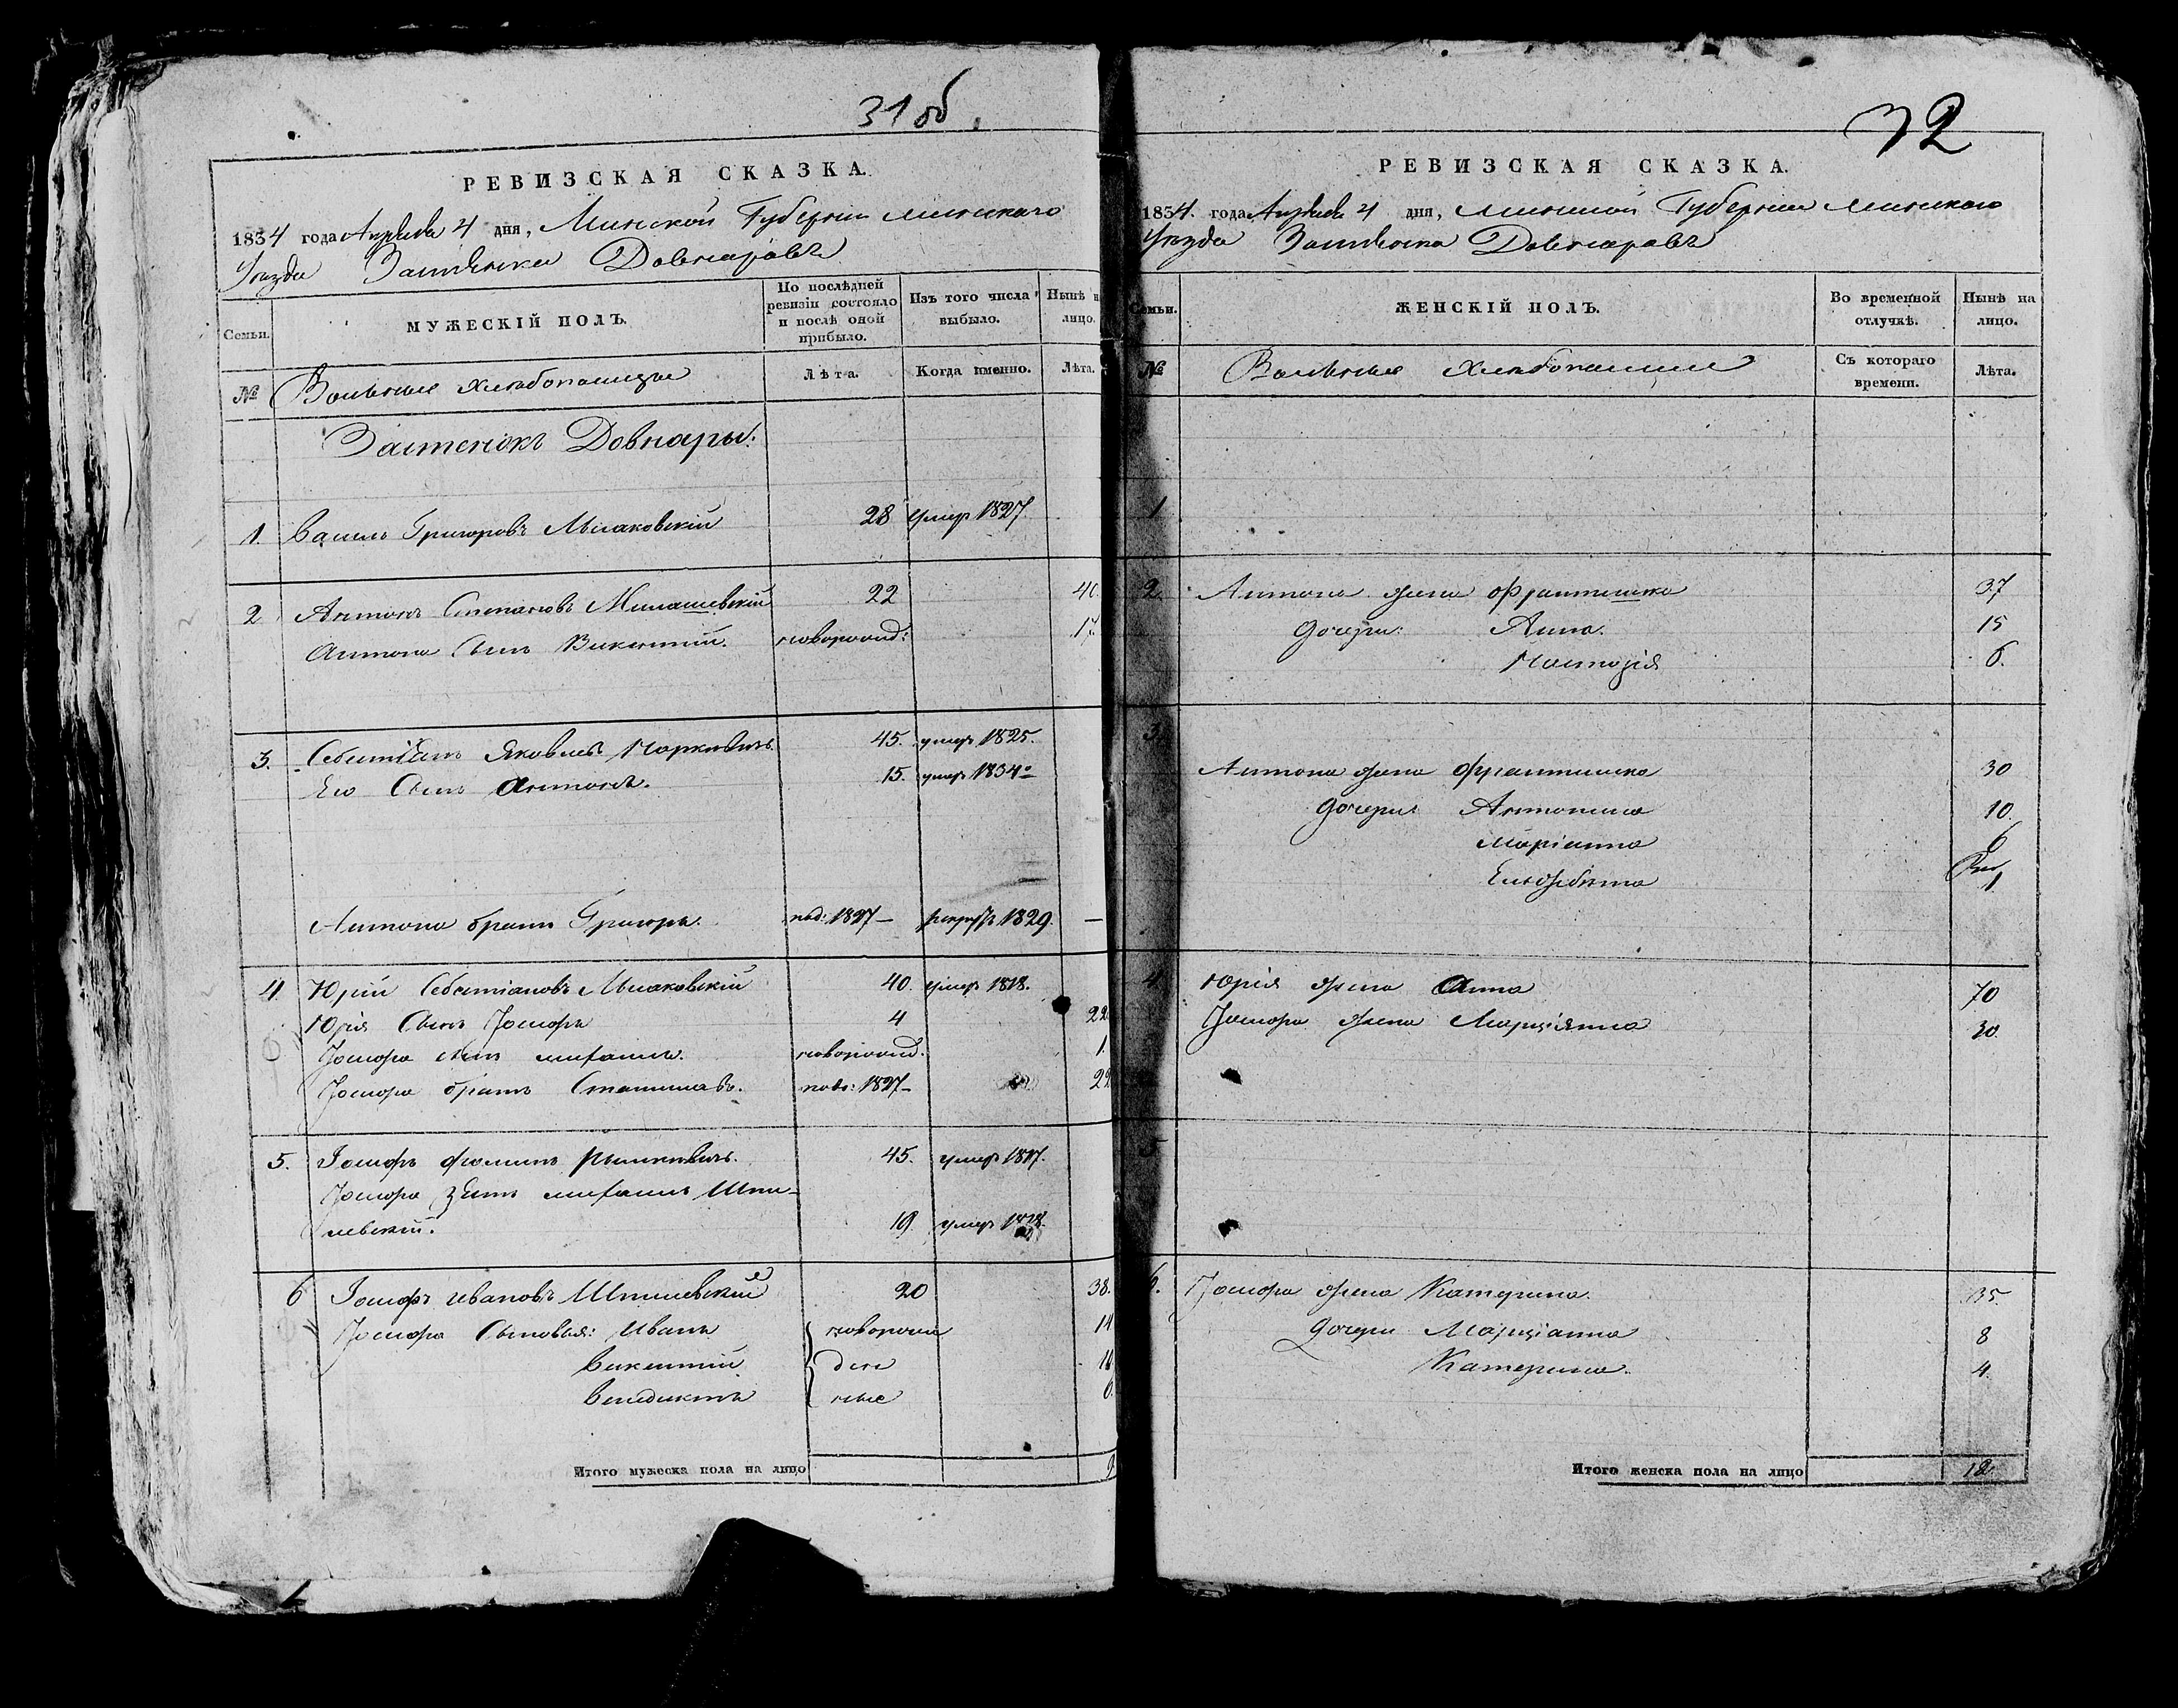 31 об
РЕВИЗСКАЯ СКАЗКА.
1834 года Апреля 4 дня, Минской Губернии Минскаго
Уезда Застѣнка Довнаровъ
Семьи.
МУЖЕСКІЙ ПОЛЪ.
По послѣдней ревизіи состояло и послѣ оной прибыло.
Изъ того числа выбыло.
Нынѣ на лицо.
№
Вольные хлѣбопашцы
Лѣта.
Когда именно.
Лѣта.
Застенокъ Довнары.
1. Василь Григоровъ 28 умер 1827
2 Антонъ Степановъ Милашевскій 22 40.
Антона Сынъ Викентій. новорожд:
3. Себастіанъ Яковлевъ 45. умеръ 1825.
Его Сынъ Антонъ. 15. умеръ 1834
Антона братъ Григоръ. 1827 — рекрутъ 1829. —
4. Юрій Себастіановъ 40. умеръ 1818.
Юрія Сынъ Іосифъ 4 22
Іосифа сынъ михаилъ. новорожд. 1.
Іосифа братъ Станиславъ. 1827 — 22
5. Іосифъ Фоминъ 45. умеръ 1817.
Іосифа зять михаилъ Шпи-
левскій. 19. умеръ 1818.
6 Іосифъ Ивановъ Шпилевскій 20 38.
Іосифа Сыновья: Иванъ новорож 14
Викентій ден
Венедиктъ ные 6.
Итого мужеска пола на лицо
32
РЕВИЗСКАЯ СКАЗКА.
1834. года Апреля 4 дня, Минской Губернии Минскаго
Уезда Застѣнка Довнаровъ
Семьи.
ЖЕНСКІЙ ПОЛЪ.
Во временной отлучкѣ.
Нынѣ на лицо.
№
Вольные Хлѣбопашцы
Съ котораго времени.
Лѣта.
1
2. Антона жена Франтишка 37
дочери: Анна. 15
Настазія 6.
3.
Антона жена Франтишка 30
дочери Антонина 10.
Маріанна 6
Ельжбѣта 1
4. Юрія жена Анна 70
Іосифа жена Марціянна 30.
5
6. Іосифа жена Катерина. 35.
дочери Марціанна 8
Катерина. 4.
Итого женска пола на лицо 12